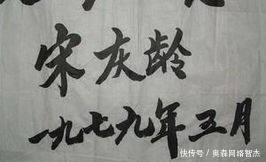 宋灰龄
一九七九年五月
快传号 / 奥森网络智杰